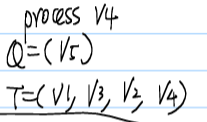 process V4
Q=(V5)
T=(V1, V3, V2, V4)